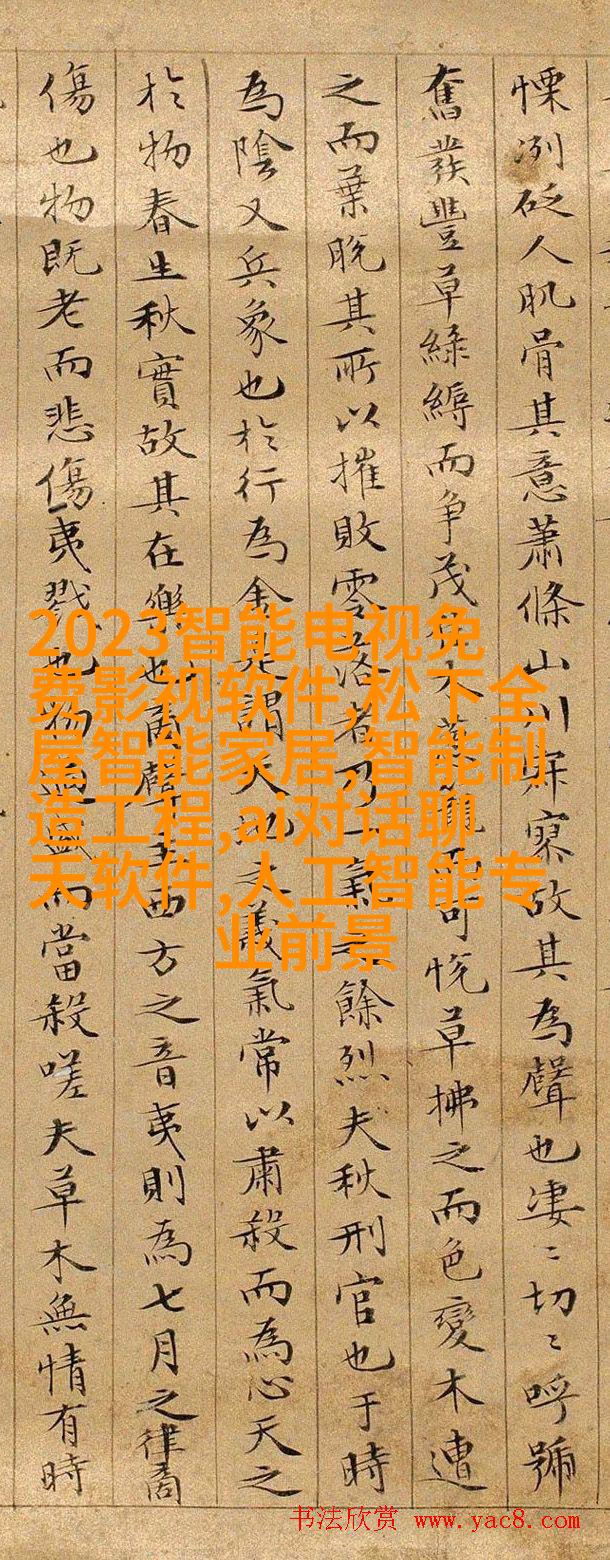 慄冽砭人肌骨其意蕭條山川寂寥故其為聲也淒〻切〻呼號
奮發豐草綠縟而爭茂佳木蔥籠而可悅草拂之而色變木遭
之而葉脫其所以摧敗零落者乃一氣之餘烈夫秋刑官也于時
為陰又兵象也於行為金是謂天地之義氣常以肅殺而為心天之
於物春生秋實故其在樂也商聲主西方之音夷則為七月之律商
傷也物既老而悲傷夷戮也物過盛而當殺嗟夫草木無情有時
2023智能电视免
费影视软件,松下全
屋智能家居,智能制
造工程,ai对话聊
天软件,人工智能专
业前景
书法欣赏 www.yac8.com